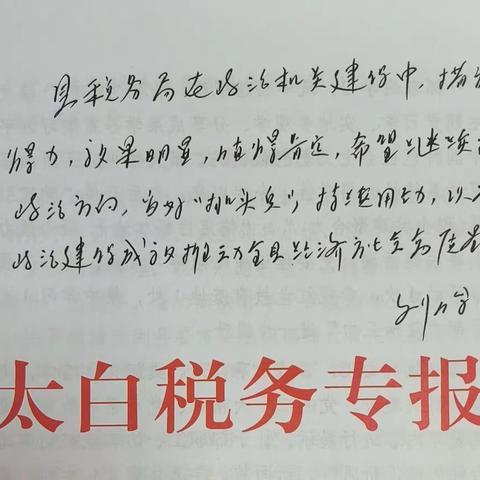 县税务局在政治机关建设中,措施
得力,效果明显,值得肯定,希望继续
政治方向,当好"排头兵",持续用力,以
政治建设成效推动全县经济社会高质量
太白税务专报